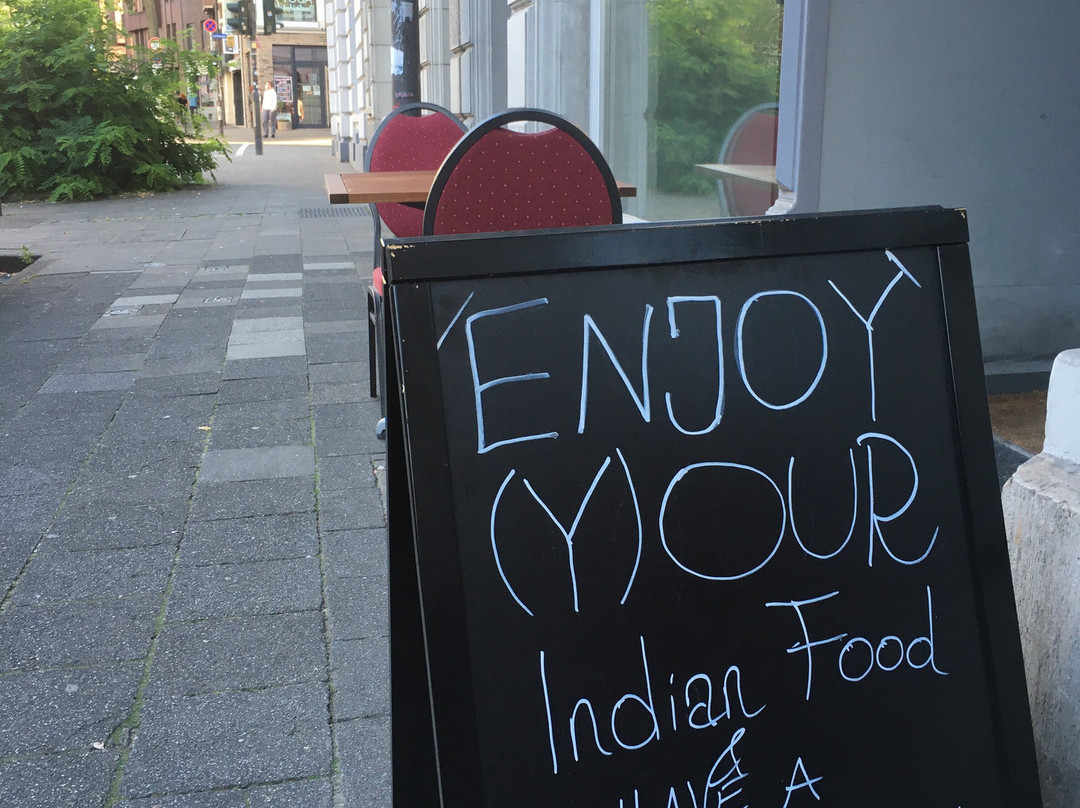 ENJOY
(Y)OUR
Indian Food
&
HAVE A